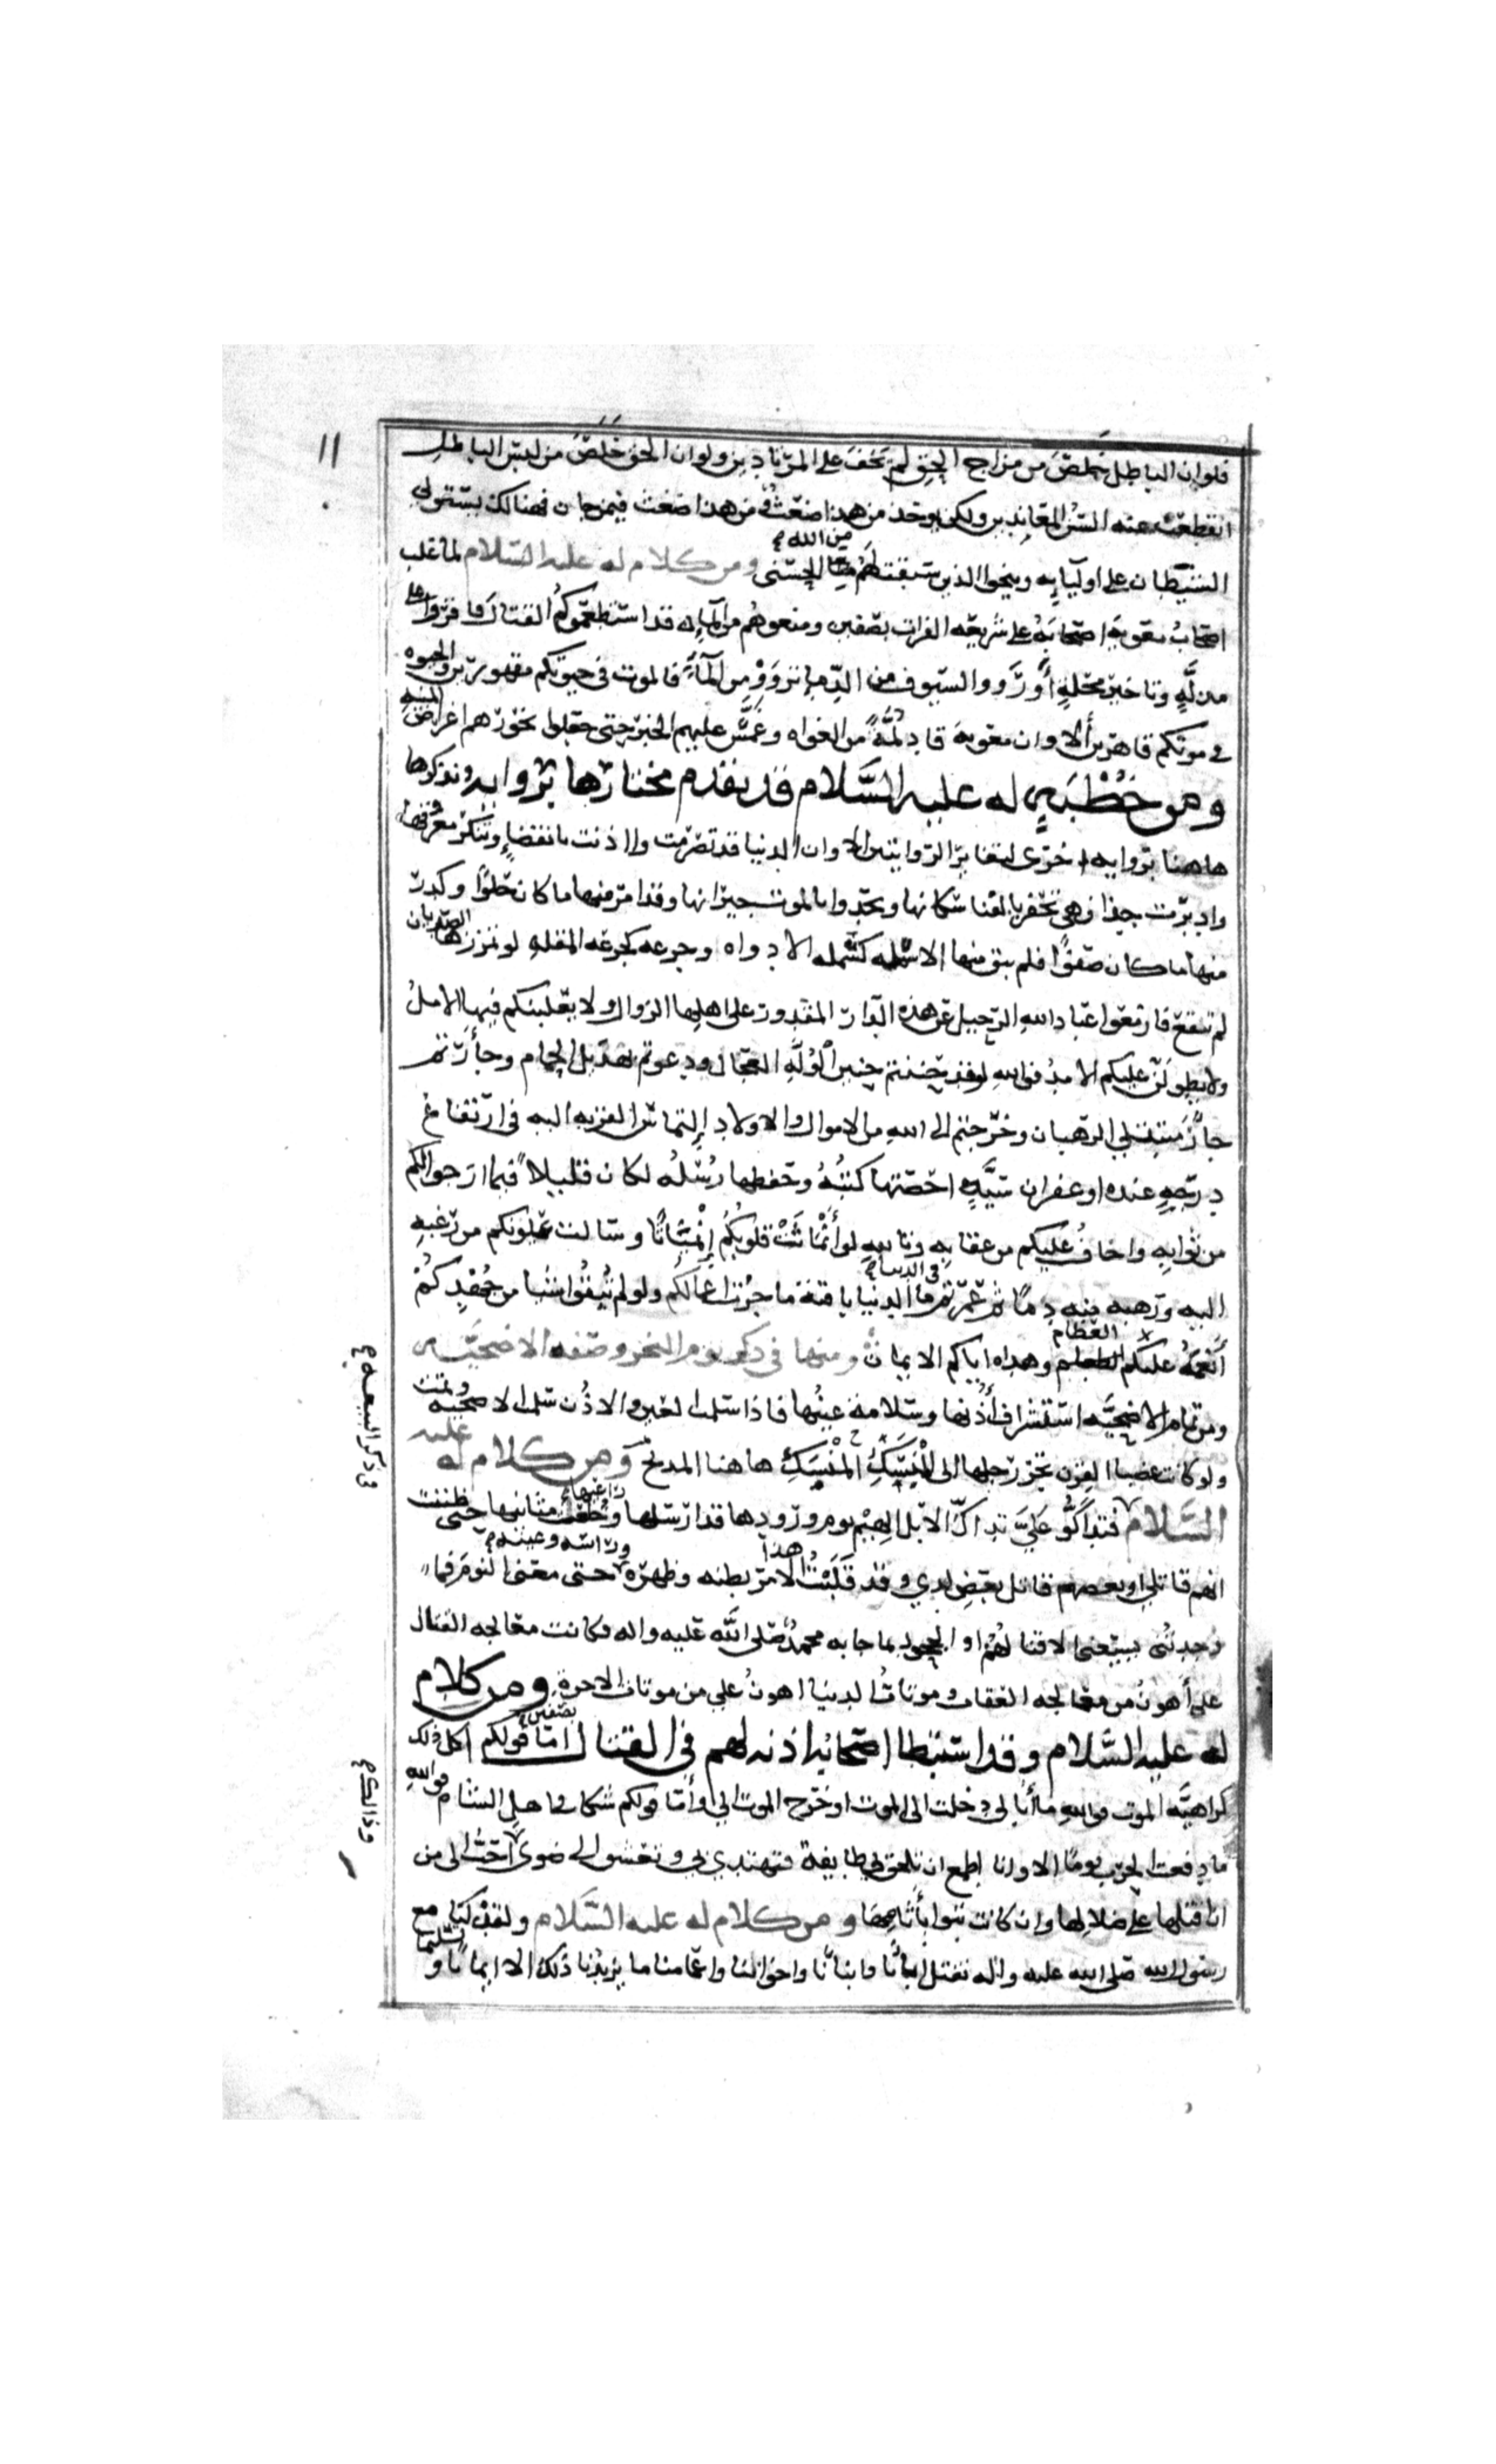 فلو ان الباطل خلص من مزاج الحق لم يخف على المرتادين ولو ان الحق خلص من لبس الباطل
انقطعت عنه السن المعاندين ولكن يوخذ من هذا ضغث ومن هذا ضغث فيمزجان فهنالك يستولى
الشيطان على اوليايه وينجوا الذين سبقت لهم من الله الحسنى ومن كلام له عليه السلام لما غلب
اصحاب معويه اصحابه على شريعه الفرات بصفين ومنعوهم من المآء قد استطعموكم القتال فاقروا على
مذلة وتاخير محلة أو رووا السيوف من الدماء ترووا من المآء فالموت فى حيوتكم مقهورين والحيوه
فى موتكم قاهرين ألا وان معويه قاد لمة من الغواه وعمس عليهم الخبر حتى جعلوا نحورهم اغراض المنيه
ومن خطبة له عليه السلام قد تقدم مختارها بروايه ونذكرها
هاهنا بروايه اخرى لتغاير الروايتين الا وان الدنيا قد تصرمت واذنت بانقضاء وتنكر معروفها
وادبرت حذا فهى تحفز بالفنا سكانها وتحدوا بالموت جيرانها وقد امر منها ما كان حلوا وكدر
منها ما كان صفوا فلم يبق منها الا سمله كسمله الاداوه وجرعه كجرعه المقله لو تمززها الصديان
لم تنقع فازمعوا عباد الله الرحيل عن هذه الدار المقدور على اهلها الزوال ولا يغلبنكم فيها الامل
ولا يطولن عليكم الامد فوالله لو حننتم حنين الوله العجال ودعوتم بهديل الحمام وجأرتم
جأر متبتلى الرهبان وخرجتم الى الله من الاموال والاولاد إلتماس القربه اليه فى ارتفاع
درجة عنده او غفران سيئة احصتها كتبه وحفظها رسله لكان قليلا فيما ارجوا لكم
من ثوابه واخاف عليكم من عقابه وتالله لو أنماثت قلوبكم إنمياثا وسالت عيونكم من رغبه
اليه ورهبه منه دما ثم عمرتم فى الدنيا ما الدنيا باقية ما جزت اعمالكم ولو لم تبقوا شيا من جهدكم
أنعمه عليكم العظام وهداه اياكم الايمان ومنها فى ذكر يوم النحر وصفه الاضحيه
ومن تمام الاضحيه استشراف أذنها وسلامة عينها فاذا سلمت العين والاذن سلمت الاضحيه وتمت
ولو كانت عضبا القرن تجر رجلها الى المنسك المنسك هاهنا المذبح ومن كلام له عليه
السلام فتداكوا على تداك الابل الهيم يوم ورودها قد ارسلها راعيها وخلعت مثانيها حتى ظننت
انهم قاتلى او بعضهم قاتل بعض لدي وقد قلبت هذا الامر بطنه وظهره وراسه وعينه حتى منعنى النوم فما
وجدتنى يسعنى الا قتالهم او الجحود بما جا به محمد صلى الله عليه واله فكانت معالجه القتال
على أهون من معالجه العقاب وموتات الدنيا اهون على من موتات الاخرة ومن كلام
له عليه السلام وقد استبطا اصحابه اذنه لهم فى القتال بصفين اما قولكم اكل ذلك
كراهيه الموت فوالله ما أبالى دخلت الى الموت او خرج الموت الى وأما قولكم شكا فى اهل الشام فوالله
ما دفعت الحرب يوما الا وانا اطمع ان تلحق بى طايفة فتهتدي بى وتعشو الى ضوى احب الى من
ان اقتلها على ضلالها وان كانت تبوا بأثامها ومن كلام له عليه السلام ولقد كنا مع
رسول الله صلى الله عليه واله نقتل ابآنا وابنآنا واخواننا واعمامنا ما يزيدنا ذلك الا ايمانا وتسليما
فى ذكر البيعه
١١